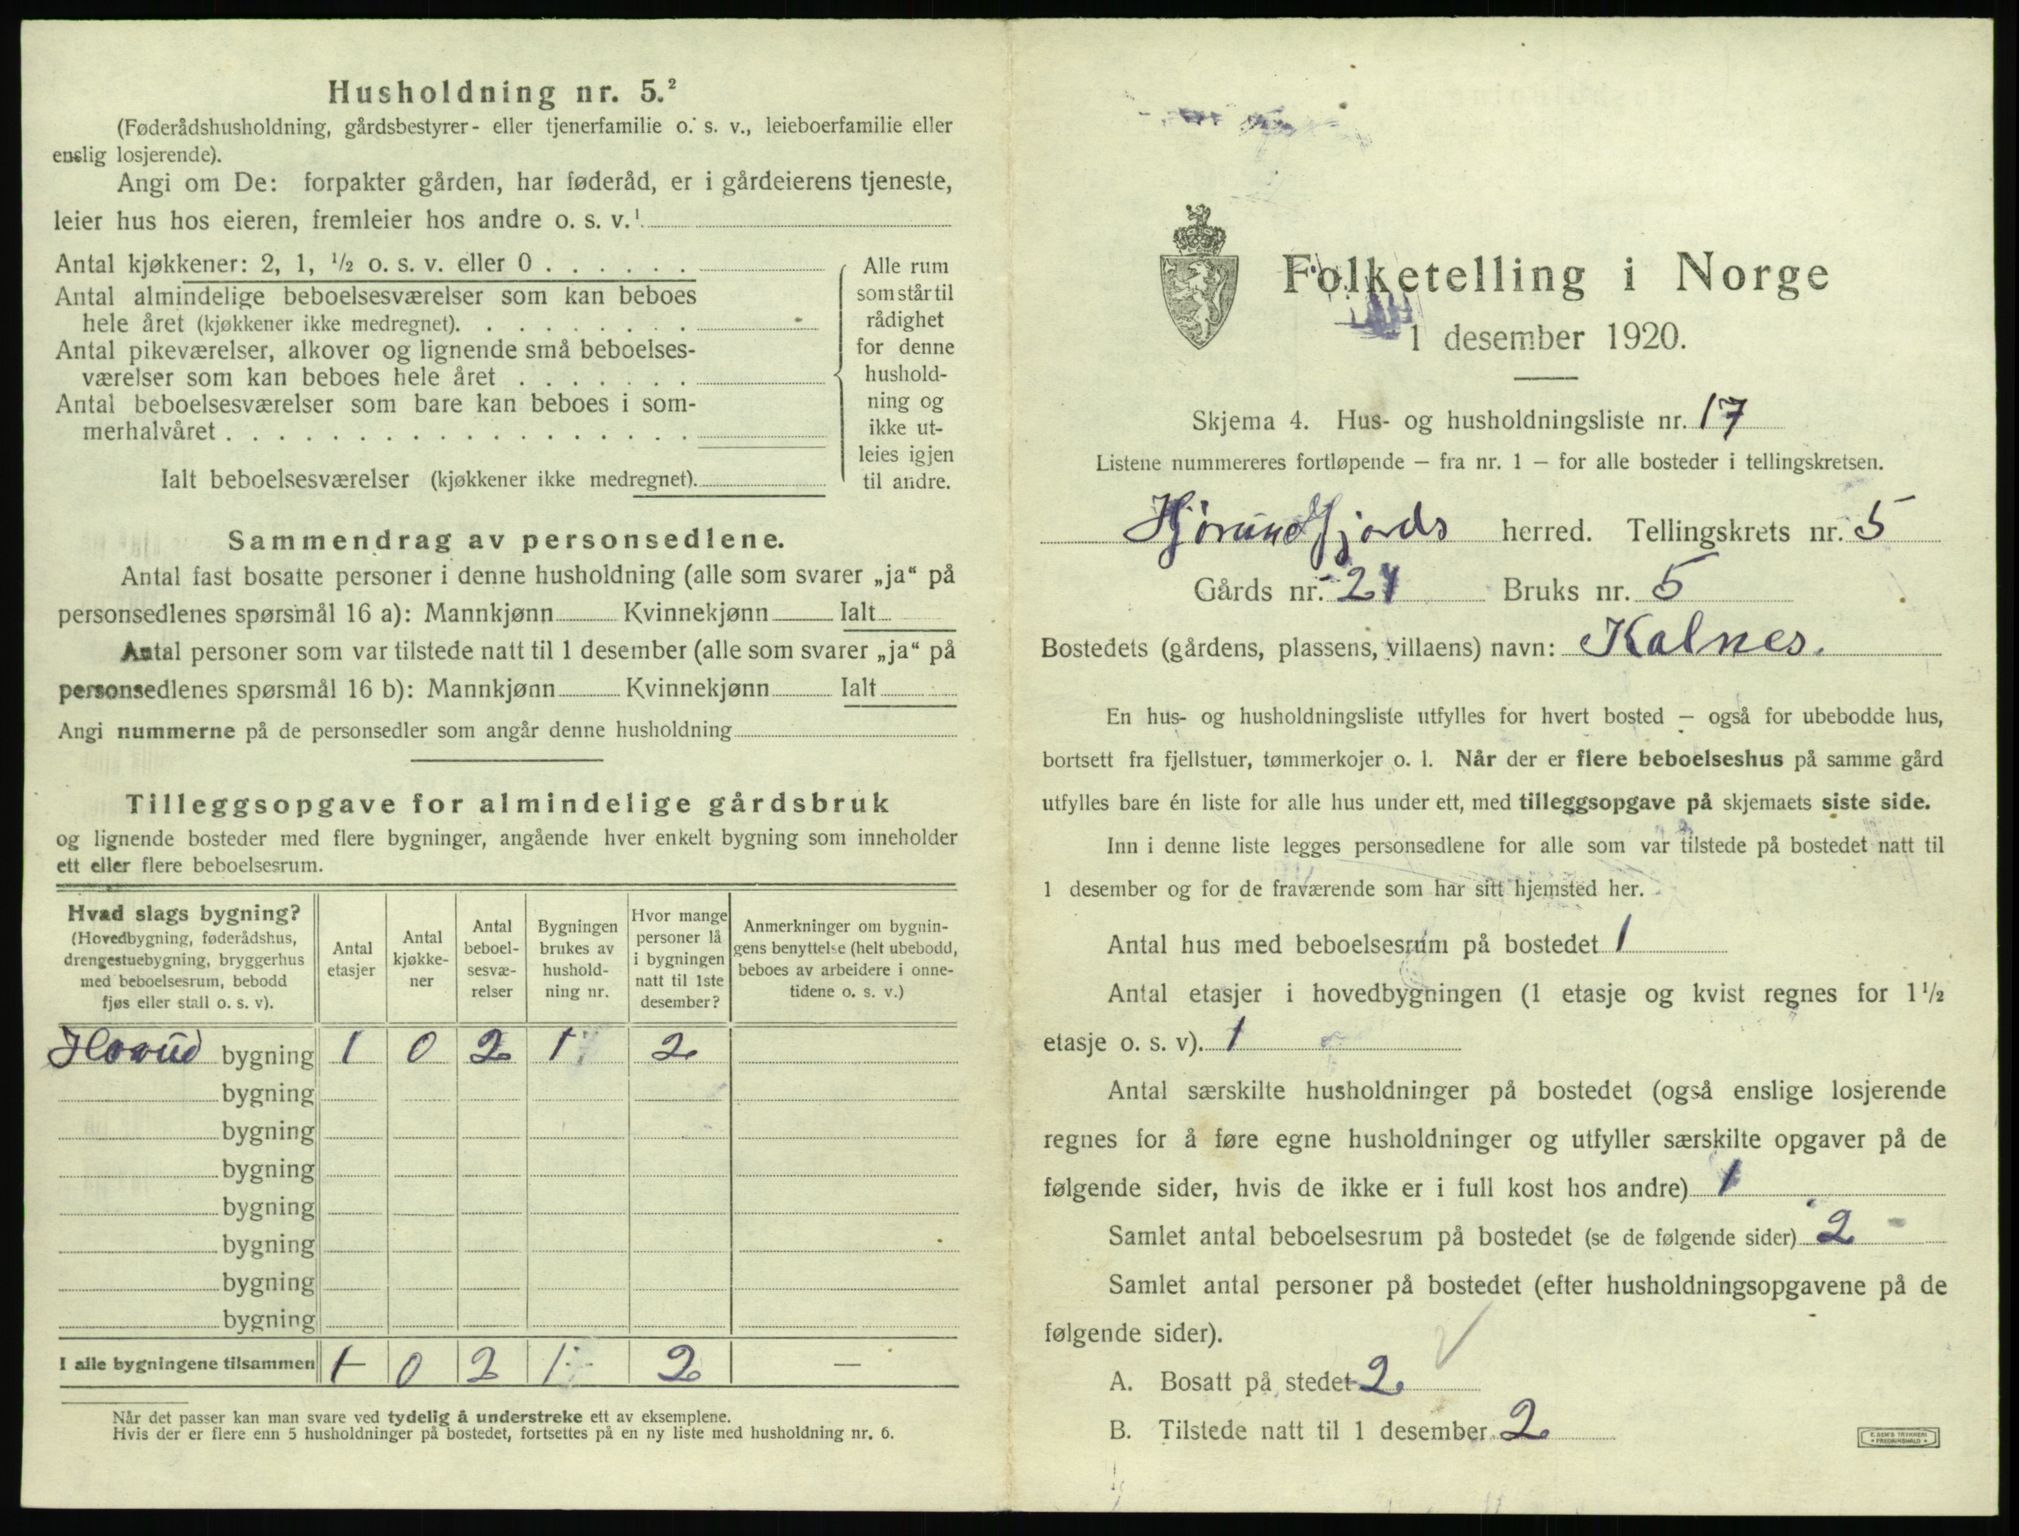 Husholdning nr. 5.²
(Føderådshusholdning, gårdsbestyrer- eller tjenerfamilie o. s. v., leieboerfamilie eller
enslig losjerende).
Angi om De: forpakter gården, har føderåd, er i gårdeierens tjeneste,
leier hus hos eieren, fremleier hos andre o. s. v.¹
Antal kjøkkener: 2, 1, ½ o. s. v. eller 0 . . . . . .
Antal almindelige beboelsesværelser som kan beboes
hele året (kjøkkener ikke medregnet). . . . . . . . .
Antal pikeværelser, alkover og lignende små beboelses-
værelser som kan beboes hele året . . . . . . .
Antal beboelsesværelser som bare kan beboes i som-
merhalvåret . . . . . . . . . . . . . . . . . .
Ialt beboelsesværelser (kjøkkener ikke medregnet).
Alle rum
som står til
rådighet
for denne
hushold-
ning og
ikke ut-
leies igjen
til andre.
Sammendrag av personsedlene.
Antal fast bosatte personer i denne husholdning (alle som svarer „ja“ på
personsedlenes spørsmål 16 a): Mannkjønn Kvinnekjønn Ialt
Antal personer som var tilstede natt til 1 desember (alle som svarer „ja“ på
personsedlenes spørsmål 16 b): Mannkjønn Kvinnekjønn Ialt
Angi nummerne på de personsedler som angår denne husholdning
Tilleggsopgave for almindelige gårdsbruk
og lignende bosteder med flere bygninger, angående hver enkelt bygning som inneholder
ett eller flere beboelsesrum.
Hvad slags bygning?
(Hovedbygning, føderådshus,
drengestuebygning, bryggerhus
med beboelsesrum, bebodd
fjøs eller stall o. s. v).
Antal
etasjer
Antal
kjøkke-
ner
Antal
beboel-
sesvæ-
relser
Bygningen
brukes av
hushold-
ning nr.
Hvor mange
personer lå
i bygningen
natt til 1ste
desember?
Anmerkninger om bygnin-
gens benyttelse (helt ubebodd,
beboes av arbeidere i onne-
tidene o. s. v.)
Hovud bygning 1 0 2 1 2
bygning
bygning
bygning
bygning
bygning
bygning
bygning
I alle bygningene tilsammen 1 0 2 1 2 —
Når det passer kan man svare ved tydelig å understreke ett av eksemplene.
Hvis der er flere enn 5 husholdninger på bostedet, fortsettes på en ny liste med husholdning nr. 6.
Folketelling i Norge
1 desember 1920.
Skjema 4. Hus- og husholdningsliste nr. 17
Listene nummereres fortløpende – fra nr. 1 – for alle bosteder i tellingskretsen.
Hjørundfjords herred. Tellingskrets nr. 5
Gårds nr. 21 Bruks nr. 5
Bostedets (gårdens, plassens, villaens) navn: Kalnes.
En hus- og husholdningsliste utfylles for hvert bosted – også for ubebodde hus,
bortsett fra fjellstuer, tømmerkojer o. l. Når der er flere beboelseshus på samme gård
utfylles bare én liste for alle hus under ett, med tilleggsopgave på skjemaets siste side.
Inn i denne liste legges personsedlene for alle som var tilstede på bostedet natt til
1 desember og for de fraværende som har sitt hjemsted her.
Antal hus med beboelsesrum på bostedet 1
Antal etasjer i hovedbygningen (1 etasje og kvist regnes for 1½
etasje o. s. v). 1
Antal særskilte husholdninger på bostedet (også enslige losjerende
regnes for å føre egne husholdninger og utfyller særskilte opgaver på de
følgende sider, hvis de ikke er i full kost hos andre) 1
Samlet antal beboelsesrum på bostedet (se de følgende sider) 2
Samlet antal personer på bostedet (efter husholdningsopgavene på de
følgende sider).
A. Bosatt på stedet 2
B. Tilstede natt til 1 desember 2
E. SEM'S TRYKKERI
FREDRIKSHALD